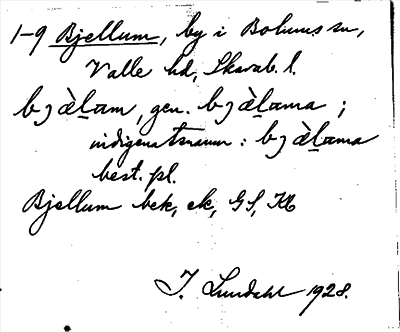 1-9 Bjellum, by i Bolums sn,
Valle hd, Skarab. l.
bjàḻam, gen. bjàḻama ;
indigenatsnamn : bjàḻama
best. pl.
Bjellum bek, ek, GS, Kb
I. Lundahl 1928.